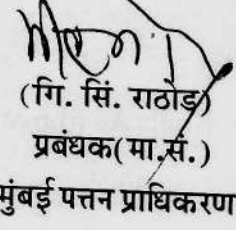 (गि. सिं. राठोड़)
प्रबंधक(मा.सं.)
मुंबई पत्तन प्राधिकरण